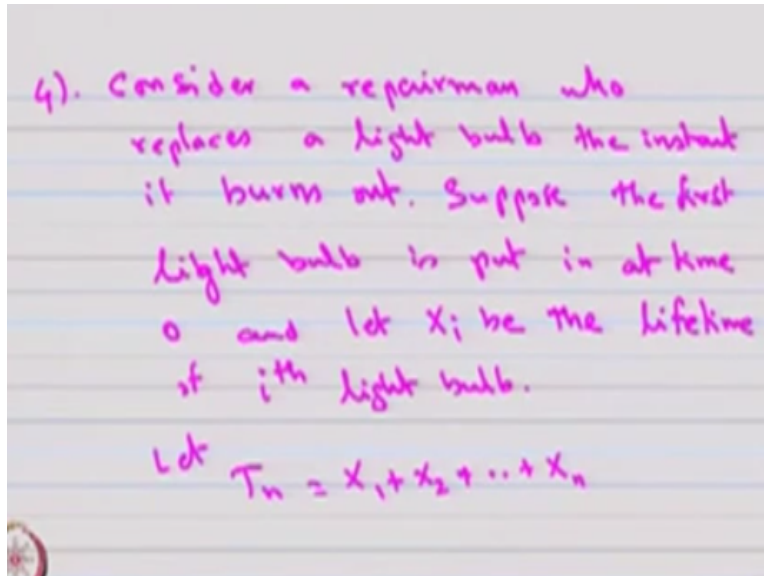 4). Consider a repairman who
replaces a light bulb the instant
it burns out. Suppose the first
light bulb is put in at time
0 and let Xi be the lifetime
of ith light bulb.
Let
Tn = X1 + X2 + .. + Xn